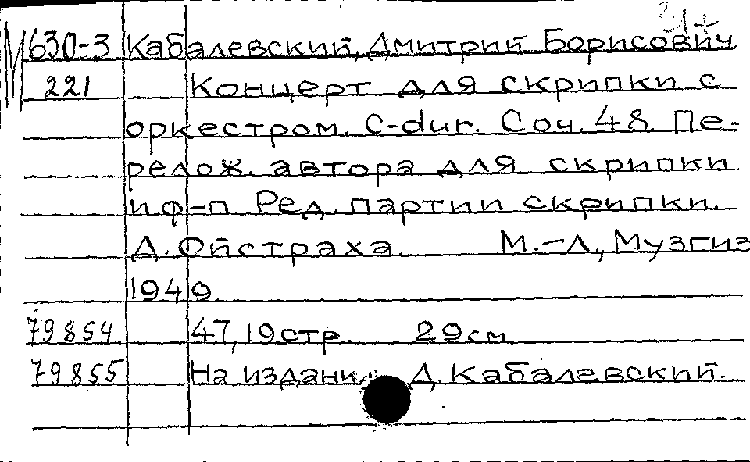 630-3 Кабалевский, Дмитрий Борисович
221 Концерт для скрипки с
оркестром. C-dur. Соч. 48. Пе-
релож. автора для скрипки
и ф-п. Ред. партии скрипки
Д. Ойстраха. М.-Л., Музгиз
1949.
79854 47, 19 стр. 29 см
79855 На издани Д. Кабалевский.